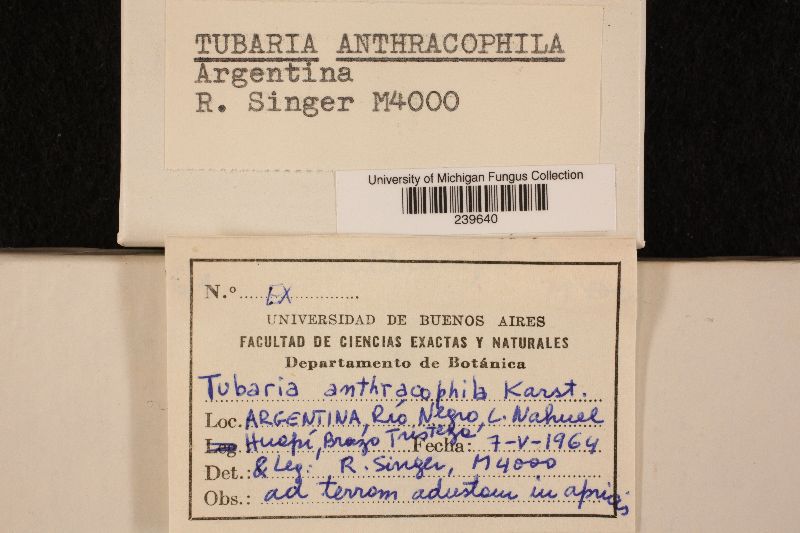 TUBARIA ANTHRACOPHILA
Argentina
R. Singer M4000
University of Michigan Fungus Collection
239640
N.º EX
UNIVERSIDAD DE BUENOS AIRES
FACULTAD DE CIENCIAS EXACTAS Y NATURALES
Departamento de Botánica
Tubaria anthracophila Karst.
Loc. ARGENTINA, Río Negro, L. Nahuel
Leg Huapí, Brazo Tristeza, Fecha: 7-V-1964
Det.: & Leg: R. Singer, M4000
Obs.: ad terram adustam in apricis